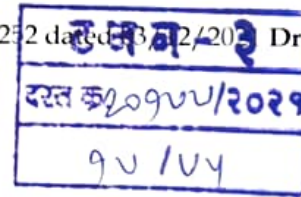 252 dated 03/12/202 Dr
- ३
दस्त क्र२०१५५/२०२१
१५ / ५५